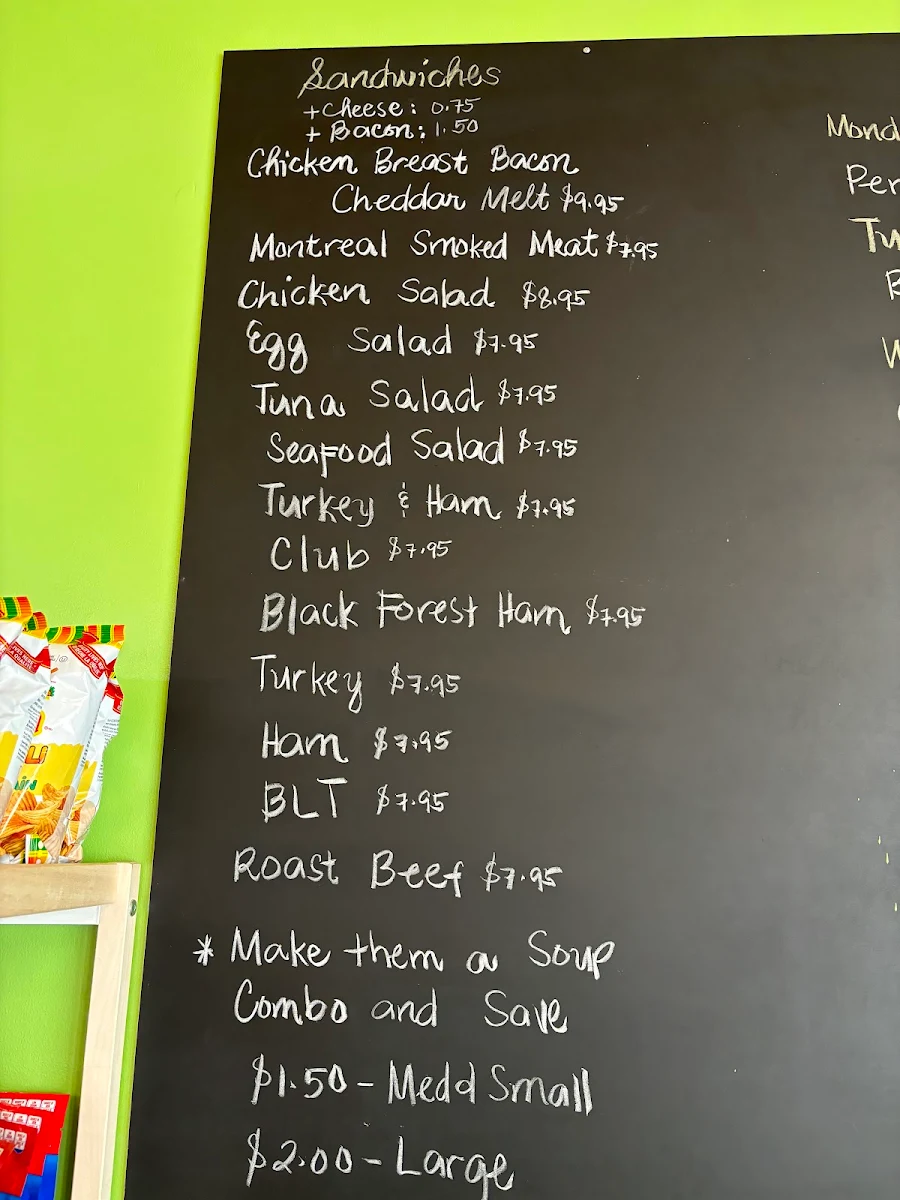 Sandwiches
+Cheese: 0.75
+ Bacon: 1.50
Chicken Breast Bacon
Cheddar Melt $9.95
Montreal Smoked Meat $7.95
Chicken Salad $8.95
Egg Salad $7.95
Tuna Salad $7.95
Seafood Salad $7.95
Turkey & Ham $7.95
Club $7.95
Black Forest Ham $7.95
Turkey $7.95
Ham $7.95
BLT $7.95
Roast Beef $7.95
* Make them a Soup
Combo and Save
$1.50 - Medd Small
$2.00 - Large
Mond
Per
Tu